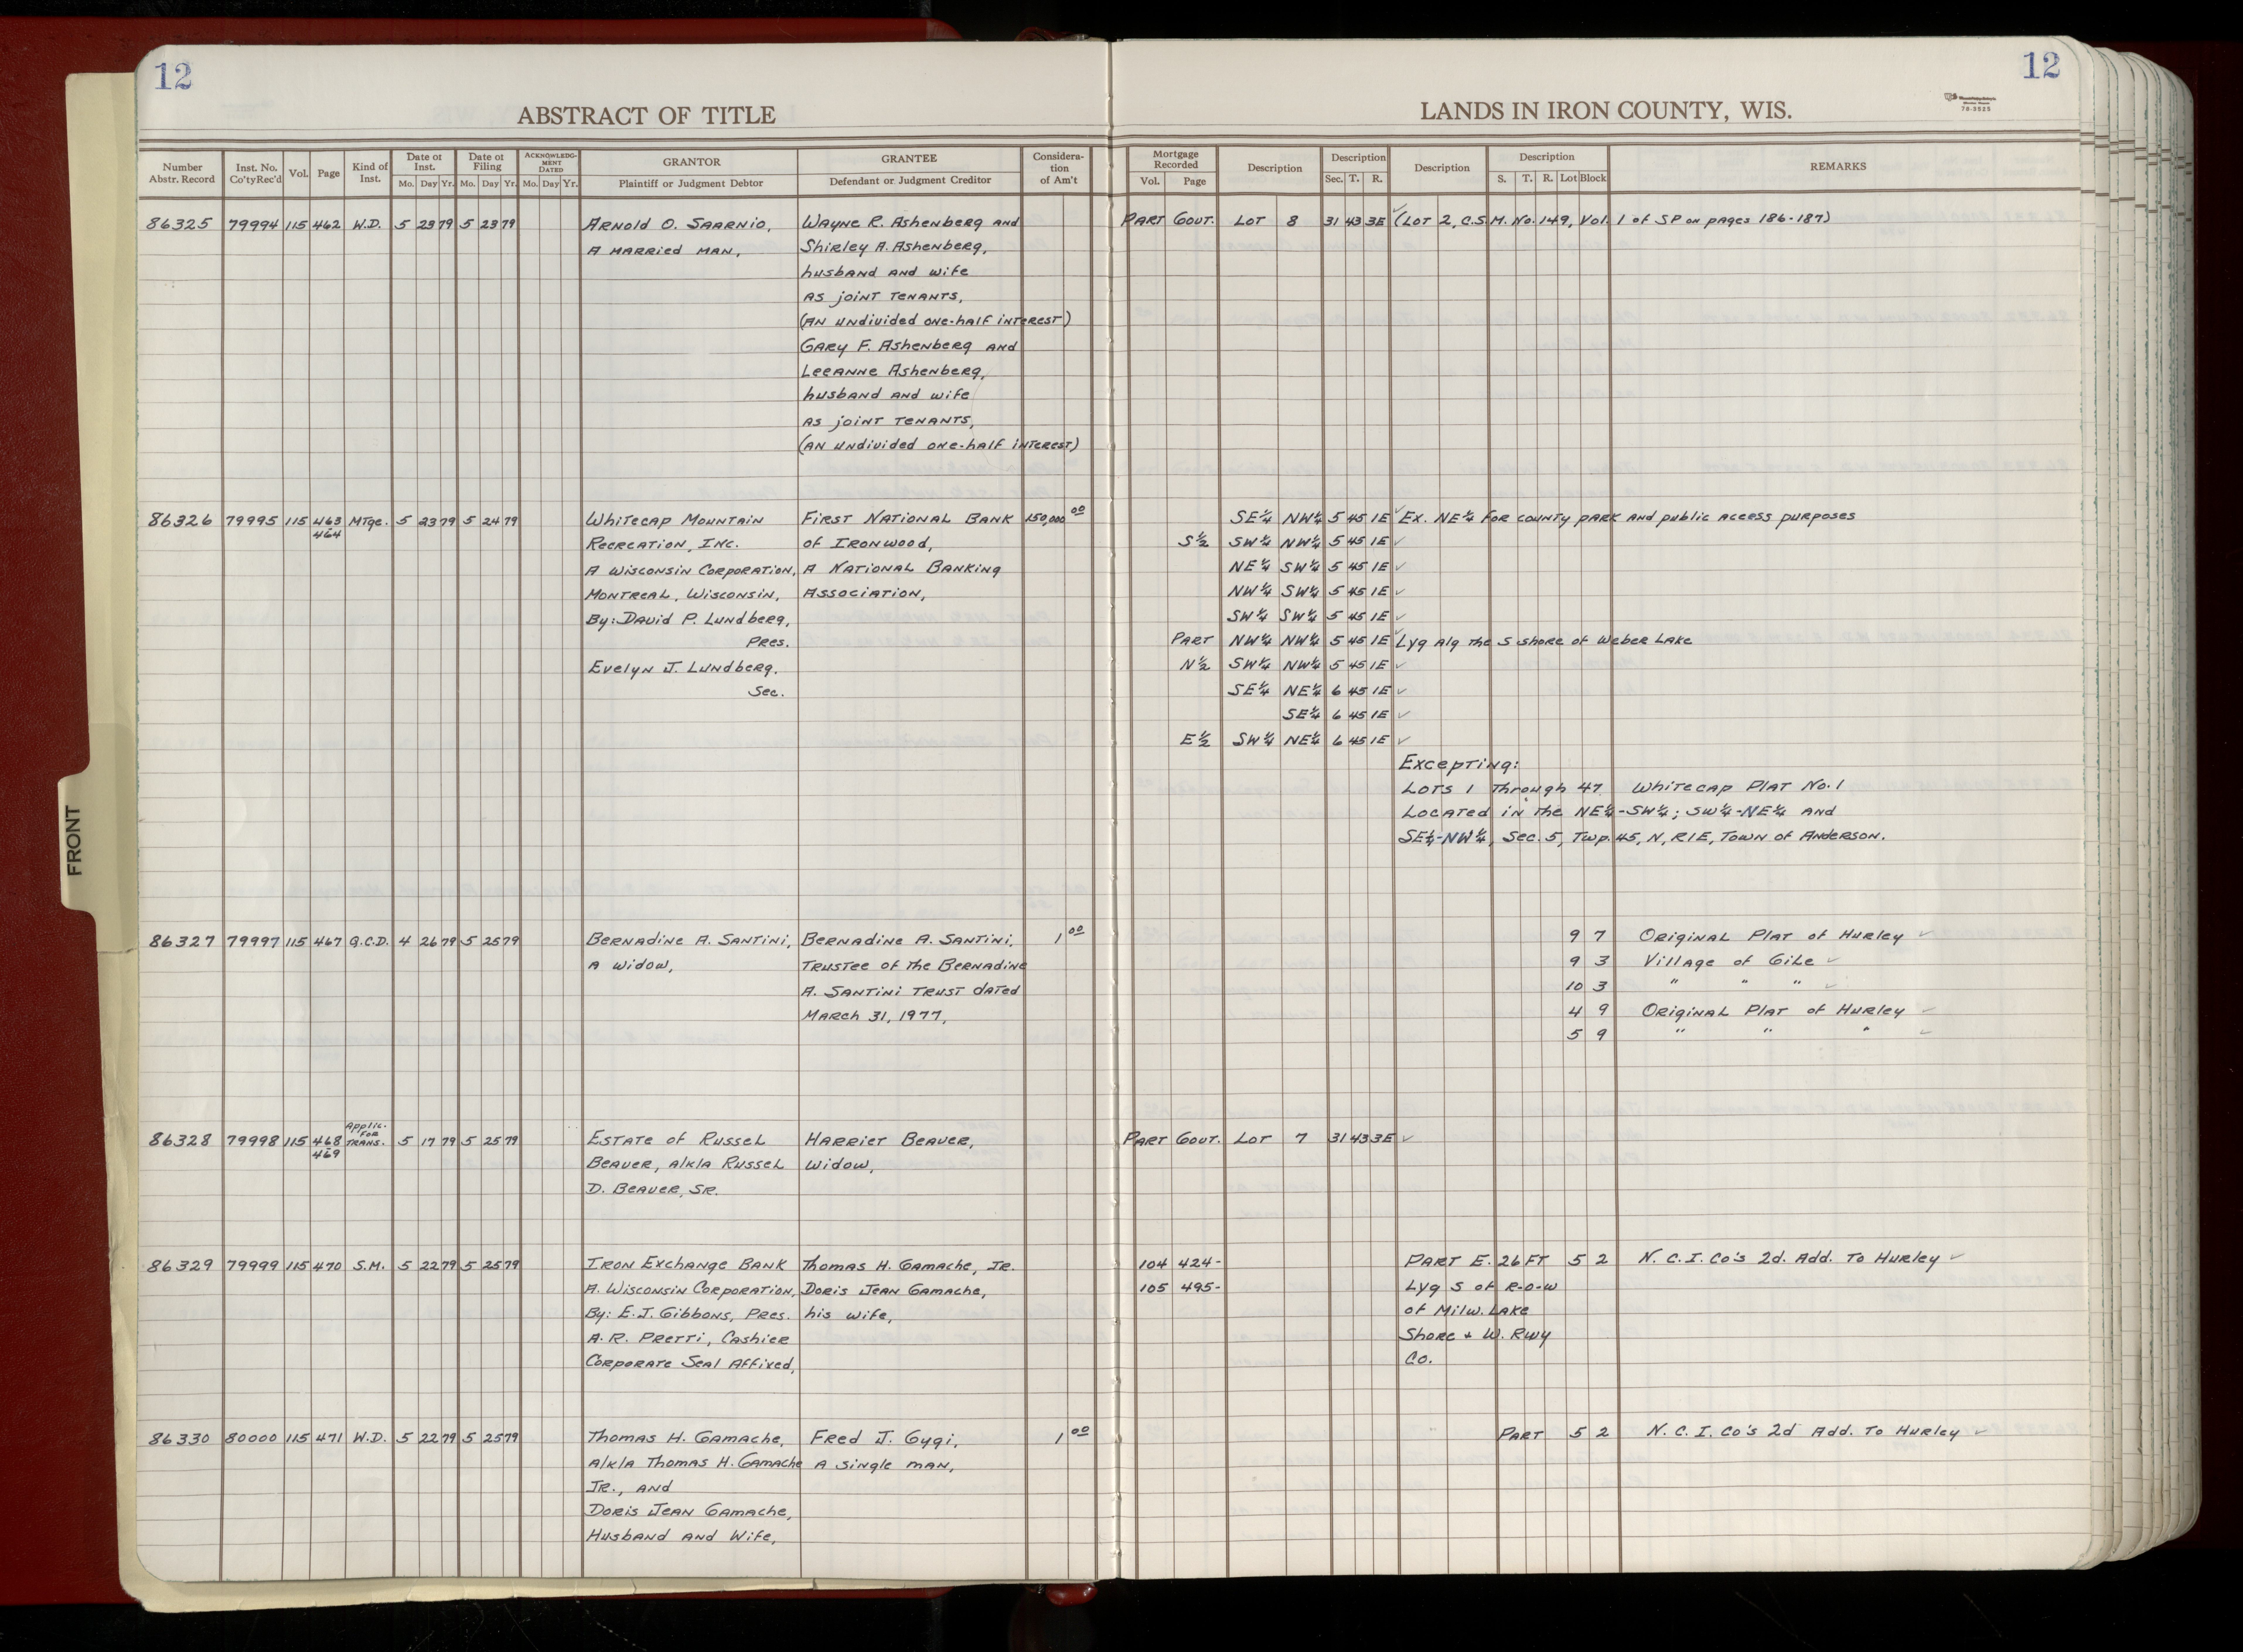 12
12
ABSTRACT OF TITLE
LANDS IN IRON COUNTY, WIS.
70-3525
Number Abstr. Record | Inst. No. Co'ty Rec'd | Vol. | Page | Kind of Inst. | Date of Inst. Mo. Day Yr. | Date of Filing Mo. Day Yr. | ACKNOWLEDGMENT DATED Mo. Day Yr. | GRANTOR Plaintiff or Judgment Debtor | GRANTEE Defendant or Judgment Creditor | Consideration of Am't | Mortgage Recorded Vol. Page | Description | Description Sec. T. R. | Description | Description S. T. R. Lot Block | REMARKS
86325 79994 115 462 W.D. 5 23 79 5 23 79 Arnold O. Saarnio, Wayne R. Ashenberg and Part Gout. Lot 8 31 43 3E ✓ (Lot 2, C.S.M. No. 149, Vol. 1 of SP on pages 186-187)
A married man, Shirley A. Ashenberg,
husband and wife
as joint tenants,
(An undivided one-half interest)
Gary F. Ashenberg and
Leeanne Ashenberg,
husband and wife
as joint tenants,
(An undivided one-half interest)
86326 79995 115 463-464 Mtge. 5 23 79 5 24 79 Whitecap Mountain First National Bank 150,000 00 SE¼ NW¼ 5 45 1E ✓ Ex. NE¼ for county park and public access purposes
Recreation, Inc. of Ironwood, S½ SW¼ NW¼ 5 45 1E ✓
A Wisconsin Corporation, A National Banking NE¼ SW¼ 5 45 1E ✓
Montreal, Wisconsin, Association, NW¼ SW¼ 5 45 1E ✓
By: David P. Lundberg, SW¼ SW¼ 5 45 1E ✓
Pres. Part NW¼ NW¼ 5 45 1E ✓ Lyg Alg the S shore of Weber Lake
Evelyn J. Lundberg. N½ SW¼ NW¼ 5 45 1E ✓
Sec. SE¼ NE¼ 6 45 1E ✓
SE¼ 6 45 1E ✓
E½ SW¼ NE¼ 6 45 1E ✓
Excepting:
Lots 1 through 47 Whitecap Plat No. 1
Located in the NE¼-SW¼; SW¼-NE¼ and
SE¼-NW¼, Sec. 5, Twp. 45, N, R1E, Town of Anderson.
86327 79997 115 467 Q.C.D. 4 26 79 5 25 79 Bernadine A. Santini, Bernadine A. Santini, 1 00 9 7 Original Plat of Hurley ✓
A widow, Trustee of the Bernadine 9 3 Village of Gile ✓
A. Santini Trust dated 10 3 " " " ✓
March 31, 1977, 4 9 Original Plat of Hurley ✓
5 9 " " " ✓
86328 79998 115 468-469 Applic. for Trans. 5 17 79 5 25 79 Estate of Russel Harriet Beaver, Part Gout. Lot 7 31 43 3E ✓
Beaver, a/k/a Russel widow,
D. Beaver, Sr.
86329 79999 115 470 S.M. 5 22 79 5 25 79 Iron Exchange Bank Thomas H. Gamache, Jr. 104 424- Part E. 26 Ft 5 2 N. C. I. Co's 2d. Add. To Hurley ✓
A. Wisconsin Corporation, Doris Jean Gamache, 105 495- Lyg S of R-o-w
By: E.J. Gibbons, Pres. his wife, of Milw. Lake
A. R. Pretti, Cashier Shore + W. Rwy
Corporate Seal Affixed, Co.
86330 80000 115 471 W.D. 5 22 79 5 25 79 Thomas H. Gamache, Fred J. Gygi, 1 00 Part 5 2 N. C. I. Co's 2d Add. To Hurley ✓
a/k/a Thomas H. Gamache A single man,
Jr., and
Doris Jean Gamache,
Husband and Wife,
FRONT